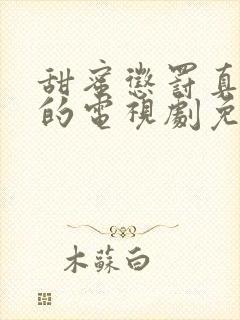 甜蜜懲罰真
的電視劇免
木蘇白